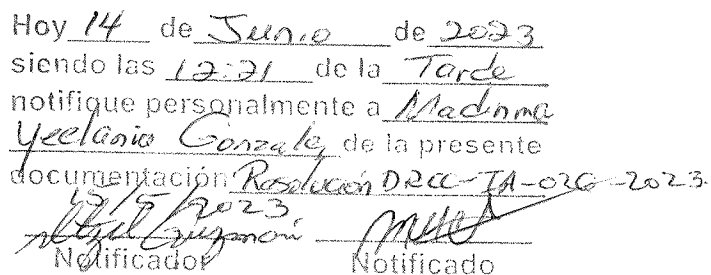 Hoy 14 de Junio de 2023
siendo las 12:21 de la Tarde
notifique personalmente a Madinma
Yeelania Gonzalez de la presente
documentación Resolución DRCC-IA-026-2023
15/5/2023
Itzel Guzmán
Notificador Notificado